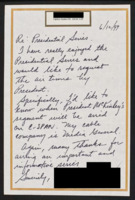 6/10/99
Re: Presidential Series
I have really enjoyed the
Presidential Series and
would like to request
the air times by
President.
Specifically, I'd like to
know when President McKinley's
segment will be aired
on C-SPAN. My cable
company is Media General
Again, many thanks for
airing an important and
informative series.
Sincerely,